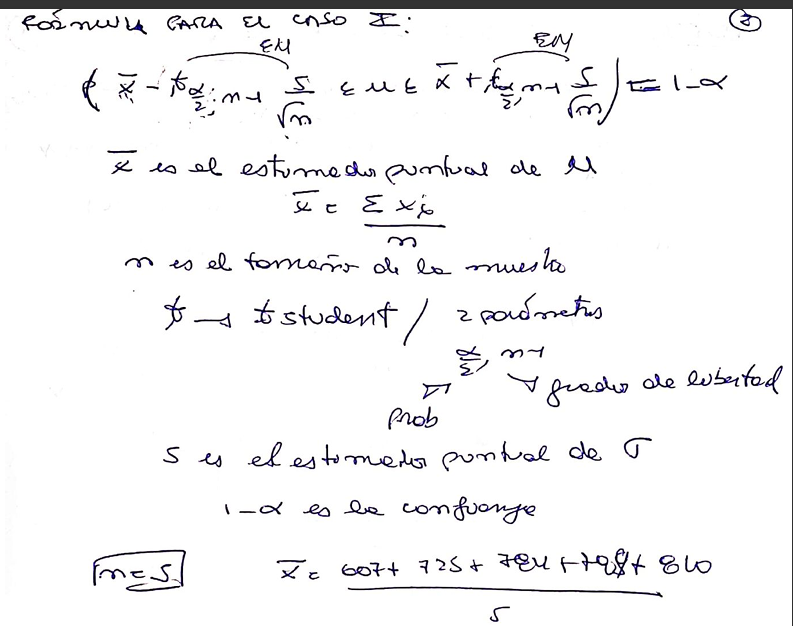 FÓRMULA PARA EL CASO I: 2
EM EM
P( x̄ - t α/2; n-1 S/√n ≤ μ ≤ x̄ + t α/2, n-1 S/√n ) = 1-α
x̄ es el estimador puntual de μ
x̄ = Σ xi / n
n es el tamaño de la muestra
t → t student / 2 parámetros
α/2, n-1
→ grados de libertad
Prob
S es el estimador puntual de σ
1-α es la confianza
n=5 x̄ = 607 + 725 + 784 + + 810
5